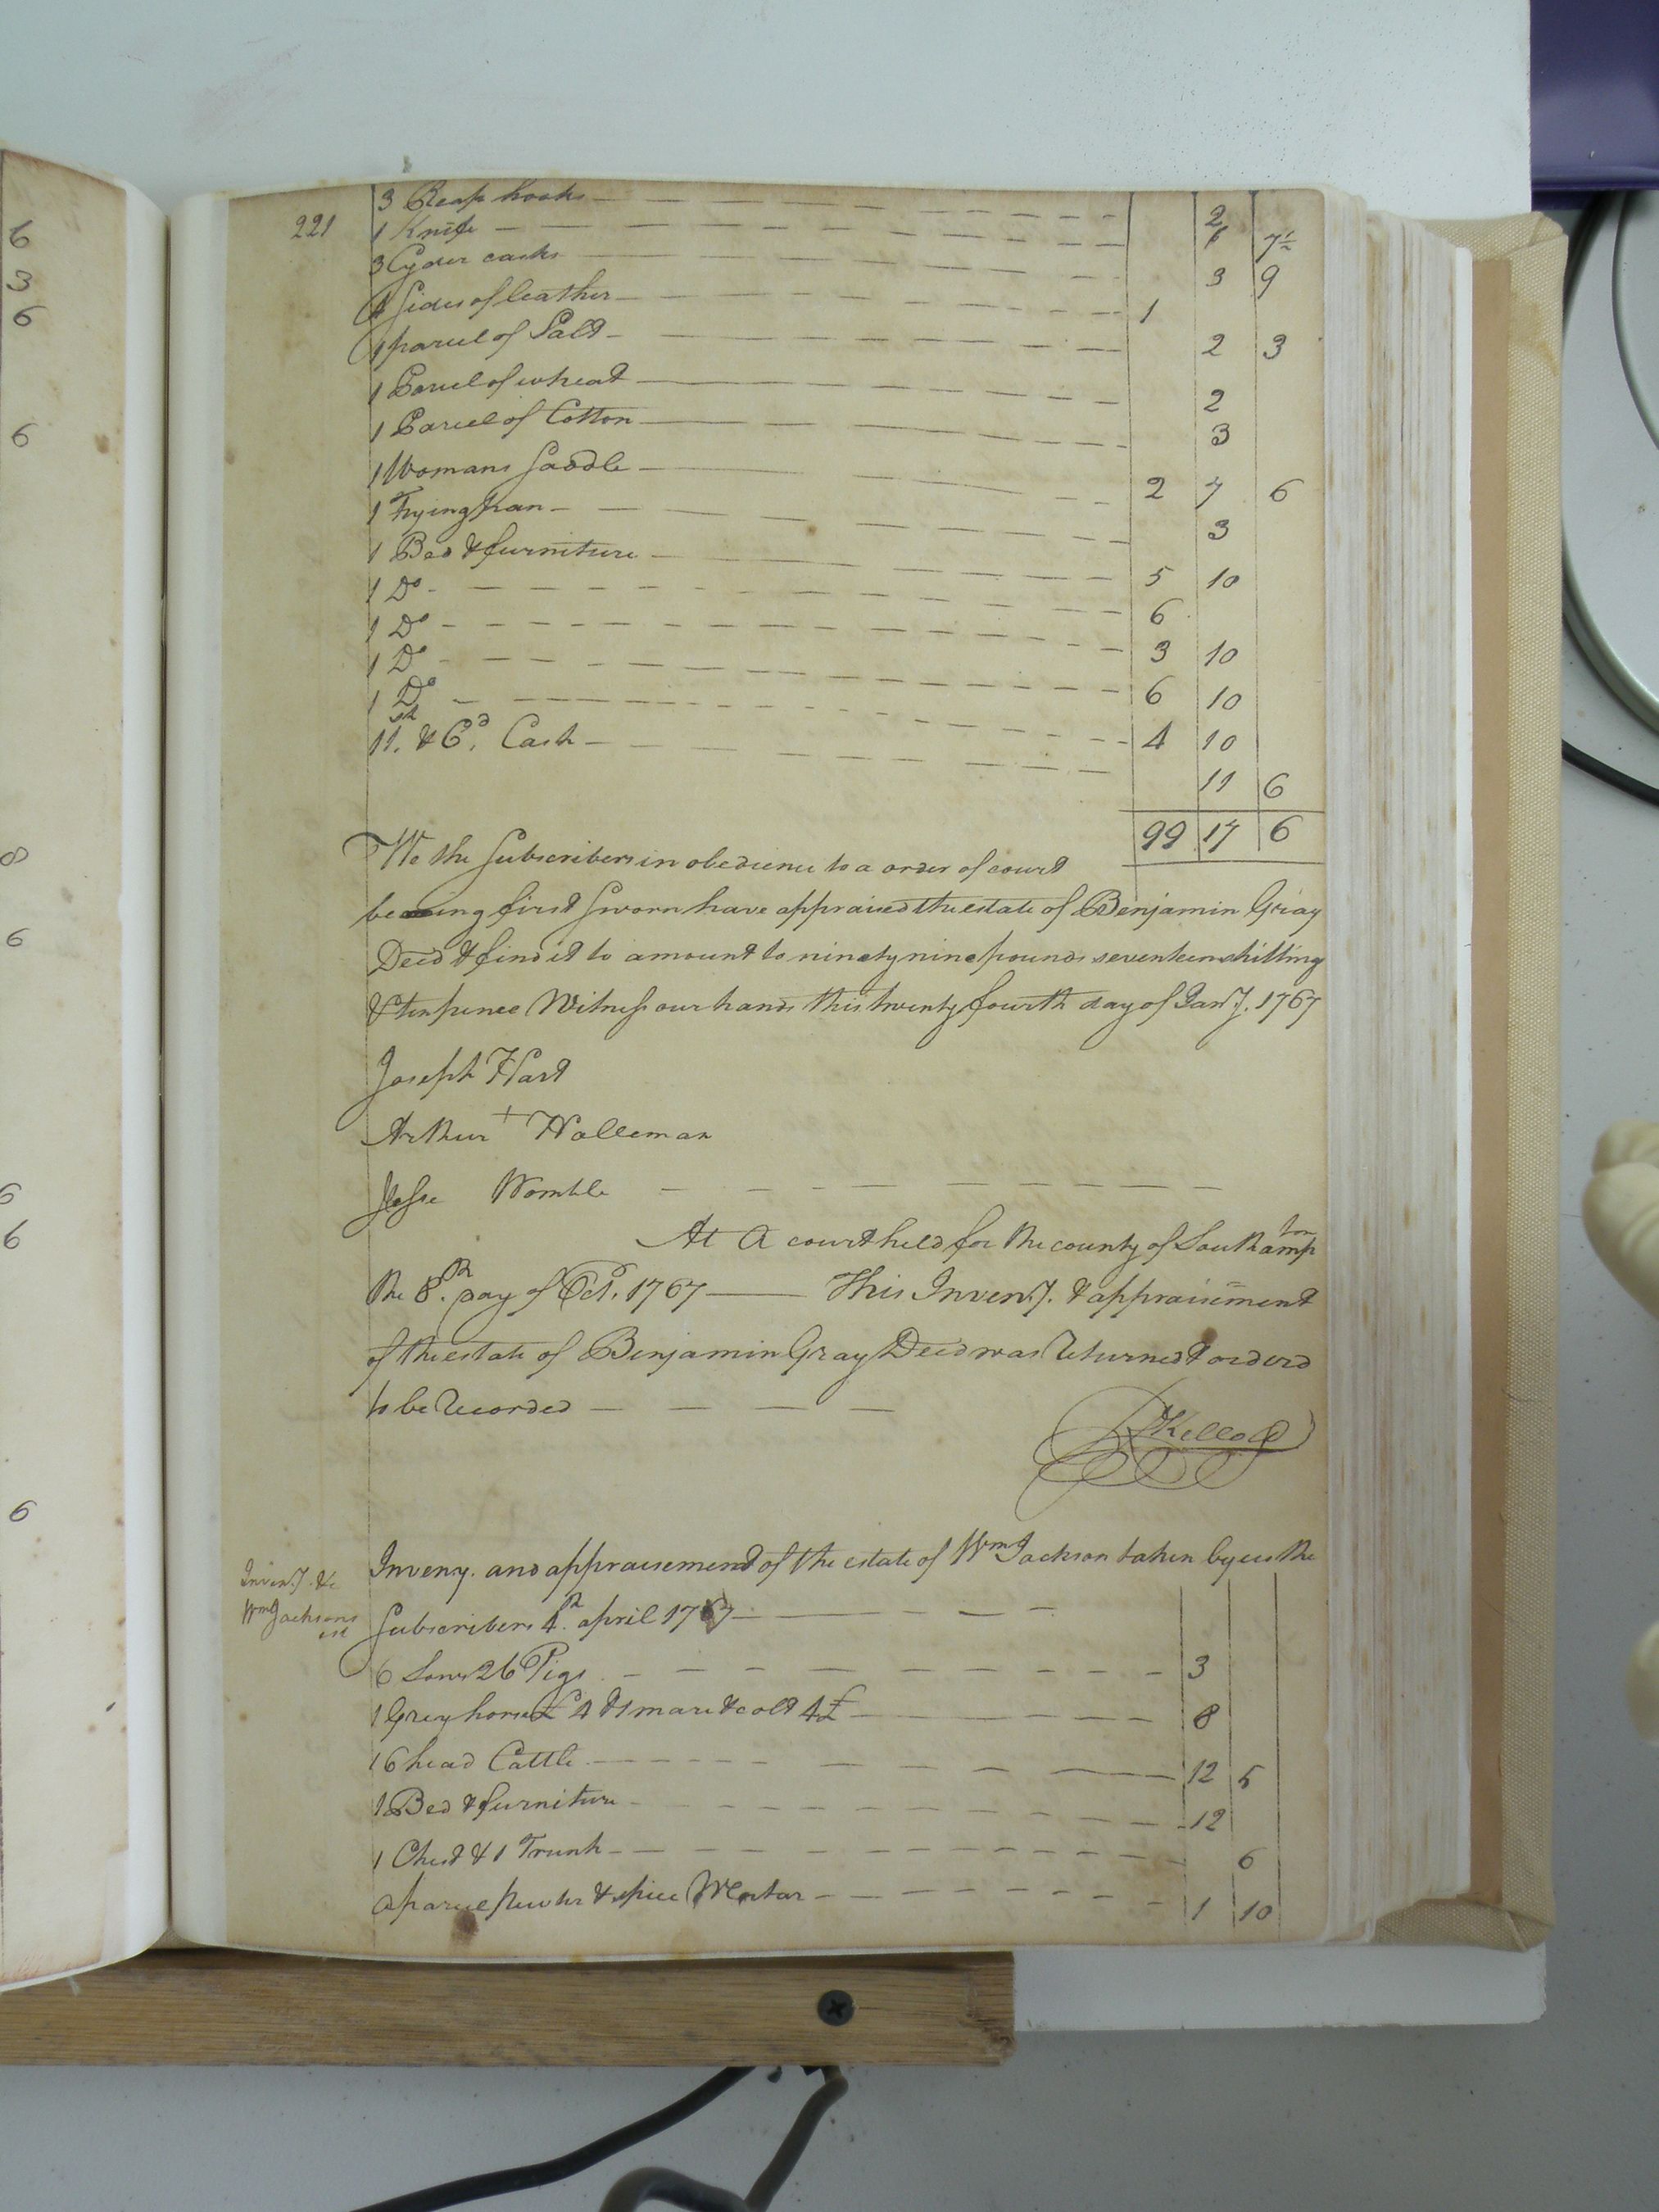 6
3
6
6
8
6
6
6
6
221
3 Reap hooks 2
1 Knife 1 7½
3 Cyder casks 3 9
4 Sides of leather 1
1 parcel of Salt 2 3
1 Parcel of wheat 2
1 Parcel of Cotton 3
1 Womans Saddle 2 7 6
1 Frying pan 3
1 Bed & furniture 5 10
1 Do 6
1 Do 3 10
1 Do 6 10
1 Do 4 10
11.sh & 6.d Cash 11 6
99 17 6
We the Subscribers in obedience to a order of court
being first Sworn have appraised the estate of Benjamin Gray
Decd & find it to amount to ninety nine pounds seventeen shilling
& tenpence Witness our hands this twenty fourth day of Jany. 1767
Joseph Hart
Arthur + Holleman
Jesse Womble
At a court held for the county of Southampton
the 8.th day of Oct. 1767 This Inveny. & appraisement
of the estate of Benjamin Gray Decd was Returned & orderd
to be Recorded
R Kello C
Inveny. &c
Wm Jacksons
est
Inveny. and appraisement of the estate of Wm Jackson taken by us the
Subscribers 4.th april 1767
6 Sows 26 Pigs 3
1 Grey horse £ 4 & 1 mare & colt 4£ 8
16 head Cattle 12 5
1 Bed & furniture 12
1 Chest & 1 Trunk 6
a parcel pewter & spice Mortar 1 10